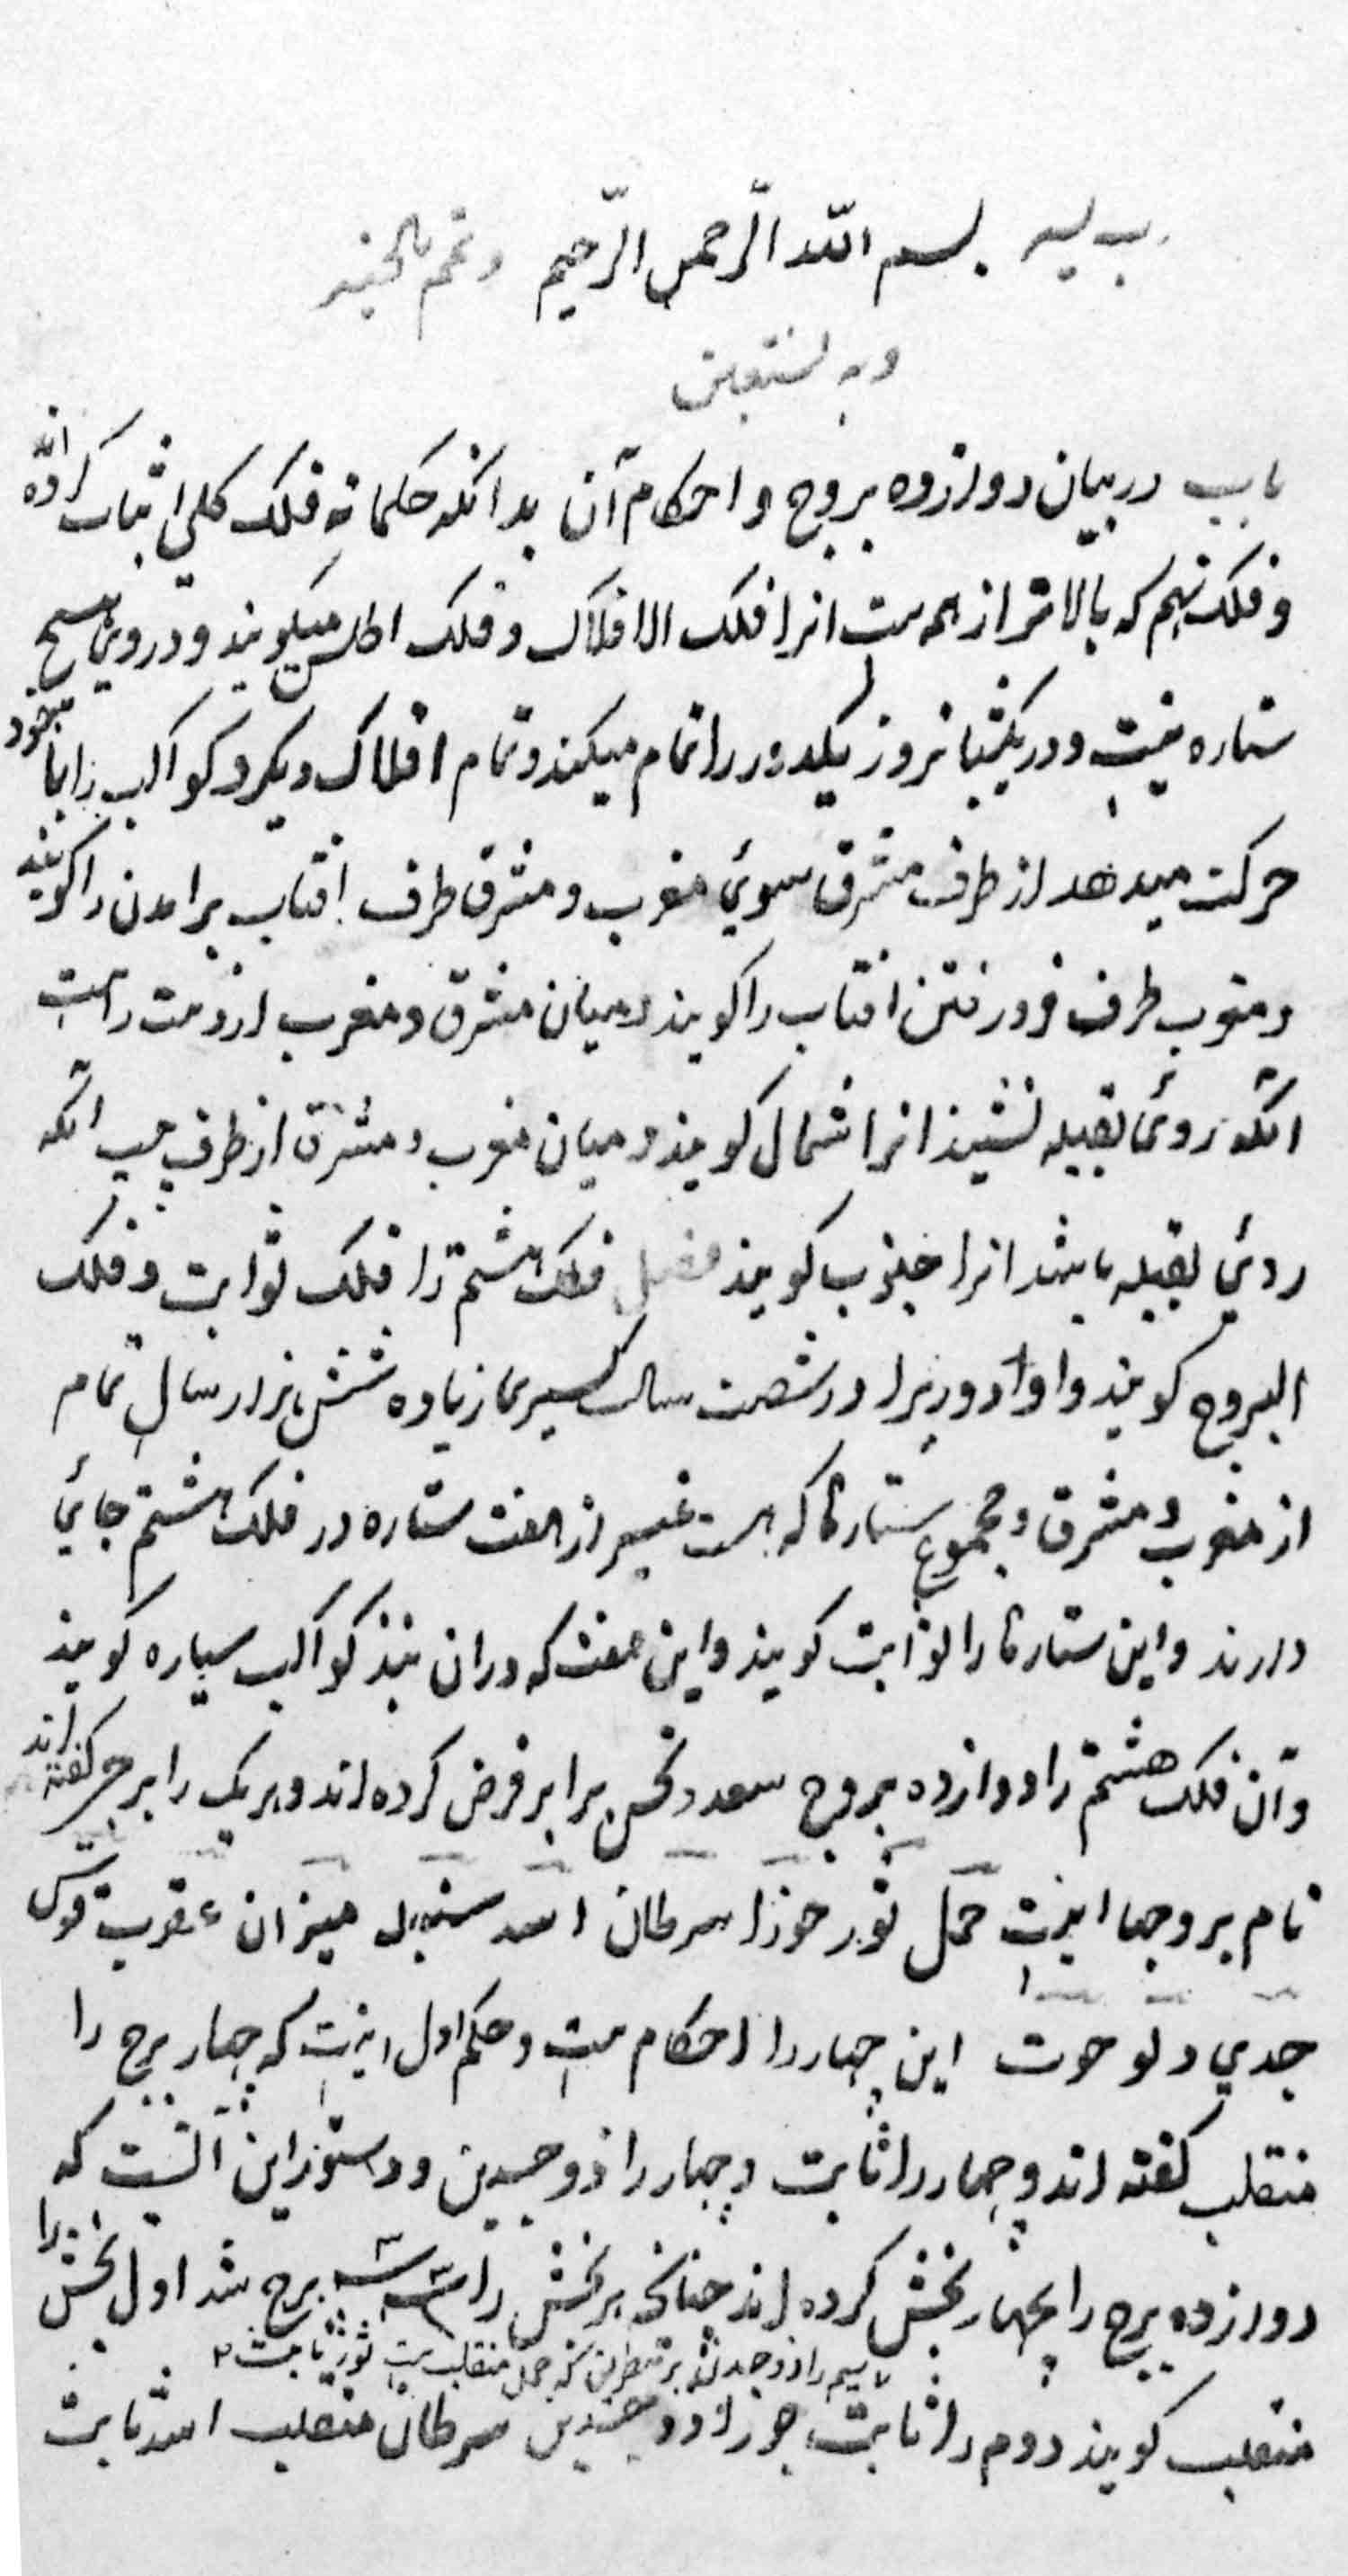 رب یسر بسم الله الرحمن الرحیم وتمم بالخیر
وبه نستعین
باب در بیان دوازده بروج و احکام آن بدانکه حکما نه فلک کلی اثبات کرده اند
و فلک نهم که بالاتر از همه ست انرا فلک الافلاک و فلک اطلس میکویند و در وی هیچ
ستاره نیست و در یکشبانروز یکدور را تمام میکند و تمام افلاک دیکر و کواکب را با خود
حرکت میدهد از طرف مشرق سوئی مغرب و مشرق طرف افتاب برامدن را کویند
و مغرب طرف فرو رفتن افتاب را کویند و میان مشرق و مغرب از دست راست
انکه روئی بقبله نشیند انرا شمال کویند و میان مغرب و مشرق از طرف چپ انکه
روئی بقبله باشد انرا جنوب کویند فصل فلک هشتم را فلک ثوابت و فلک
البروج کویند و او دور را در شصت سال زیاده شش هزار سال تمام
از مغرب و مشرق و مجموع ستارها که هست غیر از هفت ستاره در فلک هشتم جائی
دارند و این ستارها را ثوابت کویند و این هفت که دران نیند کواکب سیاره کویند
و آن فلک هشتم را دوازده بروج سعد و نحس برابر فرض کرده اند و هر یک را برجی کفته اند
نام بروجها اینست حمل ثور جوزا سرطان اسد سنبله میزان عقرب قوس
جدی دلو حوت این چهار را احکام ست و حکم اول اینست که چهار برج را
منقلب کفته اند و چهار را ثابت و چهار را ذو جسدین و دستور این آنست که
دوازده برج را بچهار بخش کرده اند چنانچه هر بخش را سه سه برج شد اول بخش را
سیم را ذو جسدین برینطریق که حمل منقلب ست ثور ثابت ۲
منقلب کویند دوم را ثابت جوزا ذو جسدین سرطان منقلب اسد ثابت